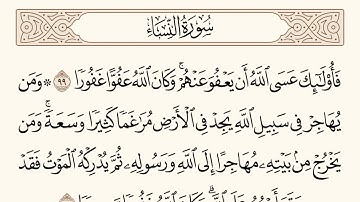 سُورَةُ النِّسَاءِ
فَأُو۟لَـٰٓئِكَ عَسَى ٱللَّهُ أَن يَعْفُوَ عَنْهُمْ ۚ وَكَانَ ٱللَّهُ عَفُوًّا غَفُورًا ٩٩ ۞ وَمَن
يُهَاجِرْ فِى سَبِيلِ ٱللَّهِ يَجِدْ فِى ٱلْأَرْضِ مُرَٰغَمًا كَثِيرًا وَسَعَةً ۚ وَمَن
يَخْرُجْ مِنۢ بَيْتِهِۦ مُهَاجِرًا إِلَى ٱللَّهِ وَرَسُولِهِۦ ثُمَّ يُدْرِكْهُ ٱلْمَوْتُ فَقَدْ